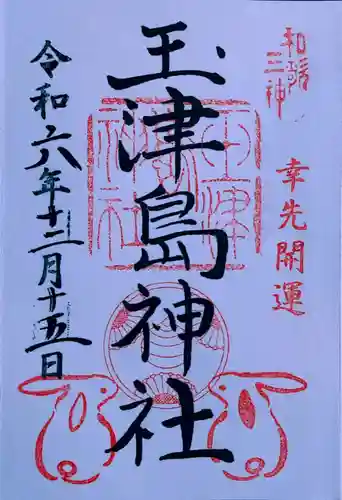 和歌三神
幸先開運
玉津島神社
玉津島神社
令和六年十二月十五日